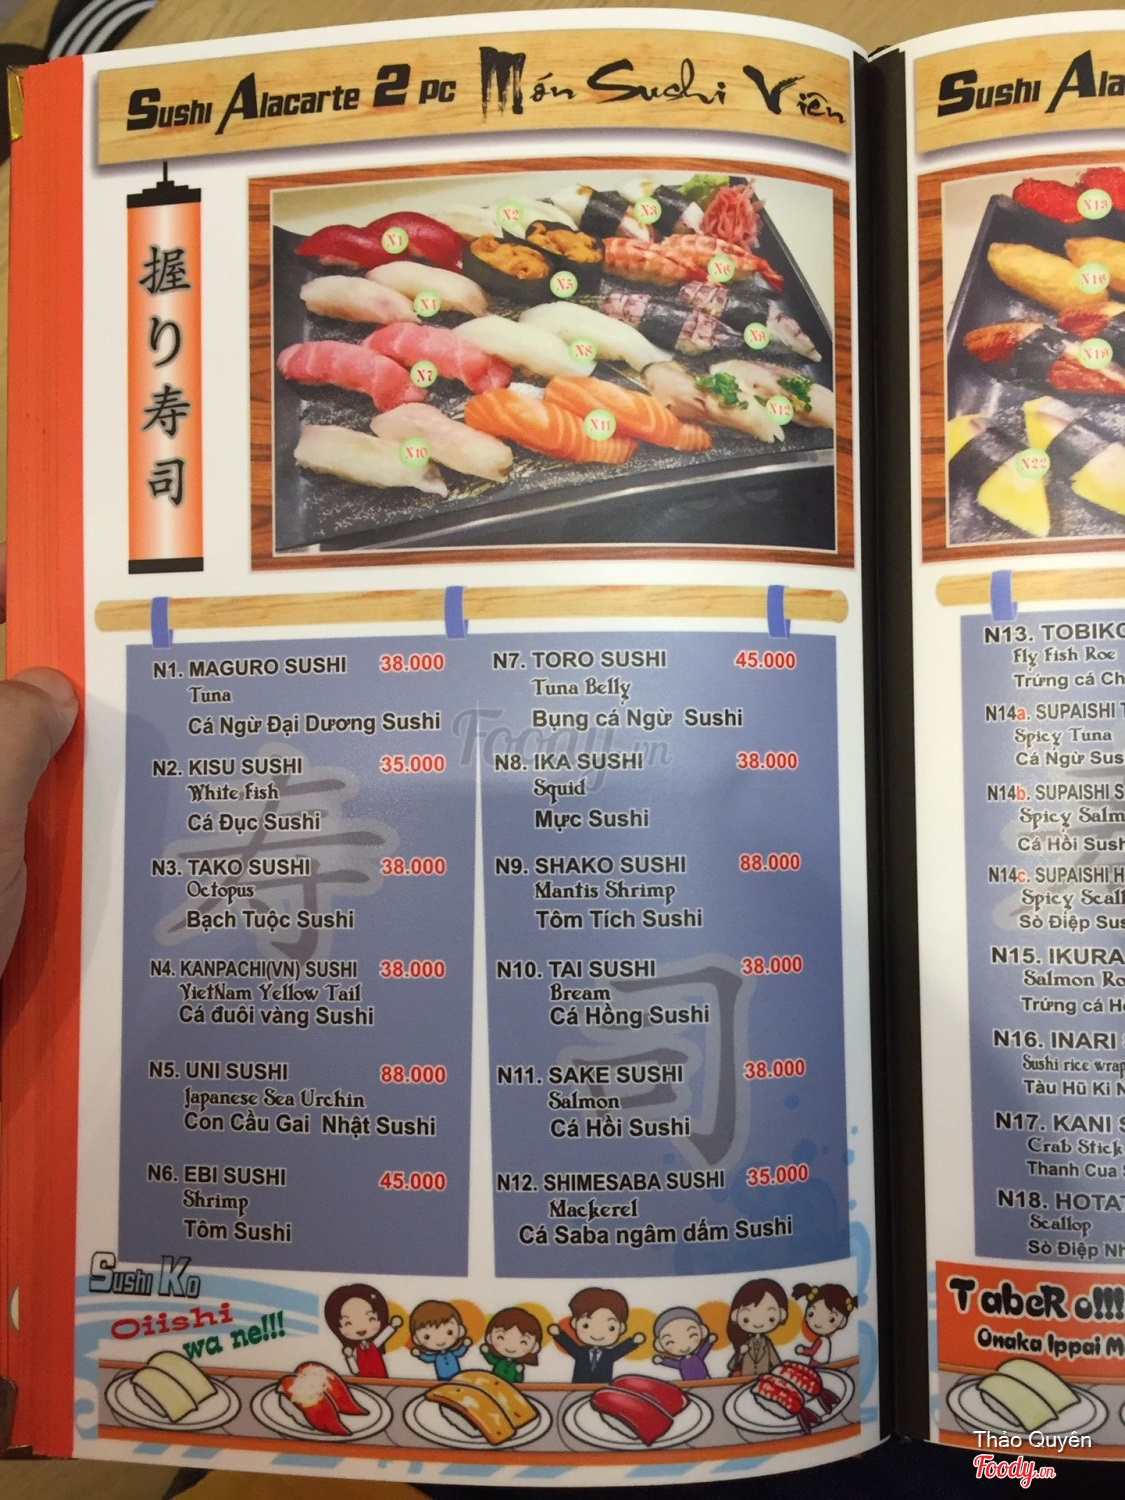 Sushi Alacarte 2 pc Món Sushi Viên
握り寿司
N1
N2
N3
N4
N5
N6
N7
N8
N9
N10
N11
N12
N1. MAGURO SUSHI 38.000
Tuna
Cá Ngừ Đại Dương Sushi
N2. KISU SUSHI 35.000
White Fish
Cá Đục Sushi
N3. TAKO SUSHI 38.000
Octopus
Bạch Tuộc Sushi
N4. KANPACHI(VN) SUSHI 38.000
VietNam Yellow Tail
Cá đuôi vàng Sushi
N5. UNI SUSHI 88.000
Japanese Sea Urchin
Con Cầu Gai Nhật Sushi
N6. EBI SUSHI 45.000
Shrimp
Tôm Sushi
N7. TORO SUSHI 45.000
Tuna Belly
Bụng cá Ngừ Sushi
N8. IKA SUSHI 38.000
Squid
Mực Sushi
N9. SHAKO SUSHI 88.000
Mantis Shrimp
Tôm Tích Sushi
N10. TAI SUSHI 38.000
Bream
Cá Hồng Sushi
N11. SAKE SUSHI 38.000
Salmon
Cá Hồi Sushi
N12. SHIMESABA SUSHI 35.000
Mackerel
Cá Saba ngâm dấm Sushi
寿司
Foody.vn
Sushi Ko
Oiishi
wa ne!!!
Sushi Ala
N13
N16
N19
N22
N13. TOBIKO
Fly Fish Roe
Trứng cá
N14a. SUPAISHI
Spicy Tuna
Cá Ngừ
N14b. SUPAISHI
Spicy
Cá Hồi
N14c. SUPAISHI
Spicy
Sò Điệp
N15. IKURA
Salmon
Trứng cá
N16. INARI
Sushi rice
Tàu Hũ Ki
N17. KANI
Crab Stick
Thanh Cua
N18.
Scallop
Sò Điệp
TabeRo!!!
Onaka Ippai
Thảo Quyên
Foody.vn